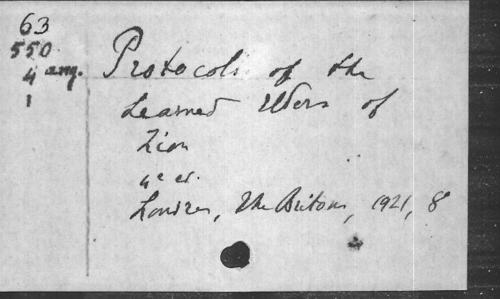 63
550
4 ang.
1
Protocols of the
Learned Elders of
Zion
4e ed.
Londres, The Britons, 1921, 8